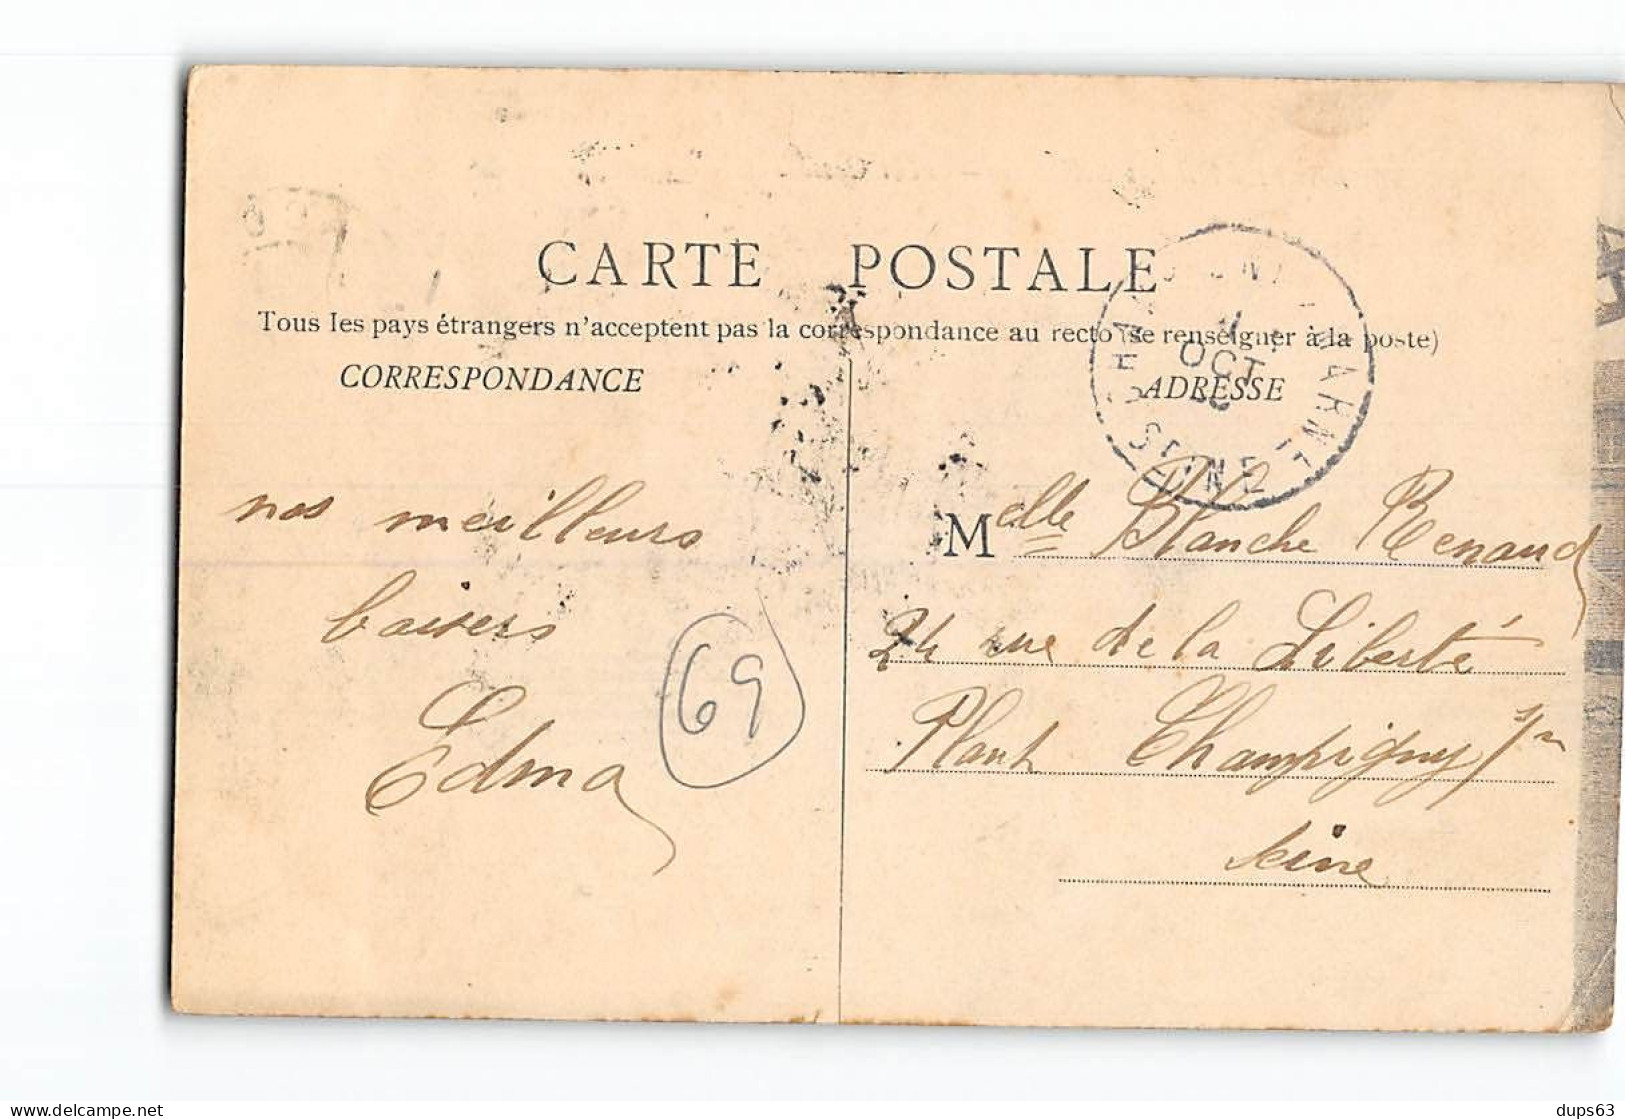 CARTE POSTALE
Tous les pays étrangers n'acceptent pas la correspondance au recto (se renseigner à la poste)
CORRESPONDANCE
ADRESSE
OCT
SEINE
nos meilleurs
baisers
Edma
69
Melle Blanche Renaud
24 rue de la Liberté
Plant Champigny s/m
Seine
delcampe.net
dups63